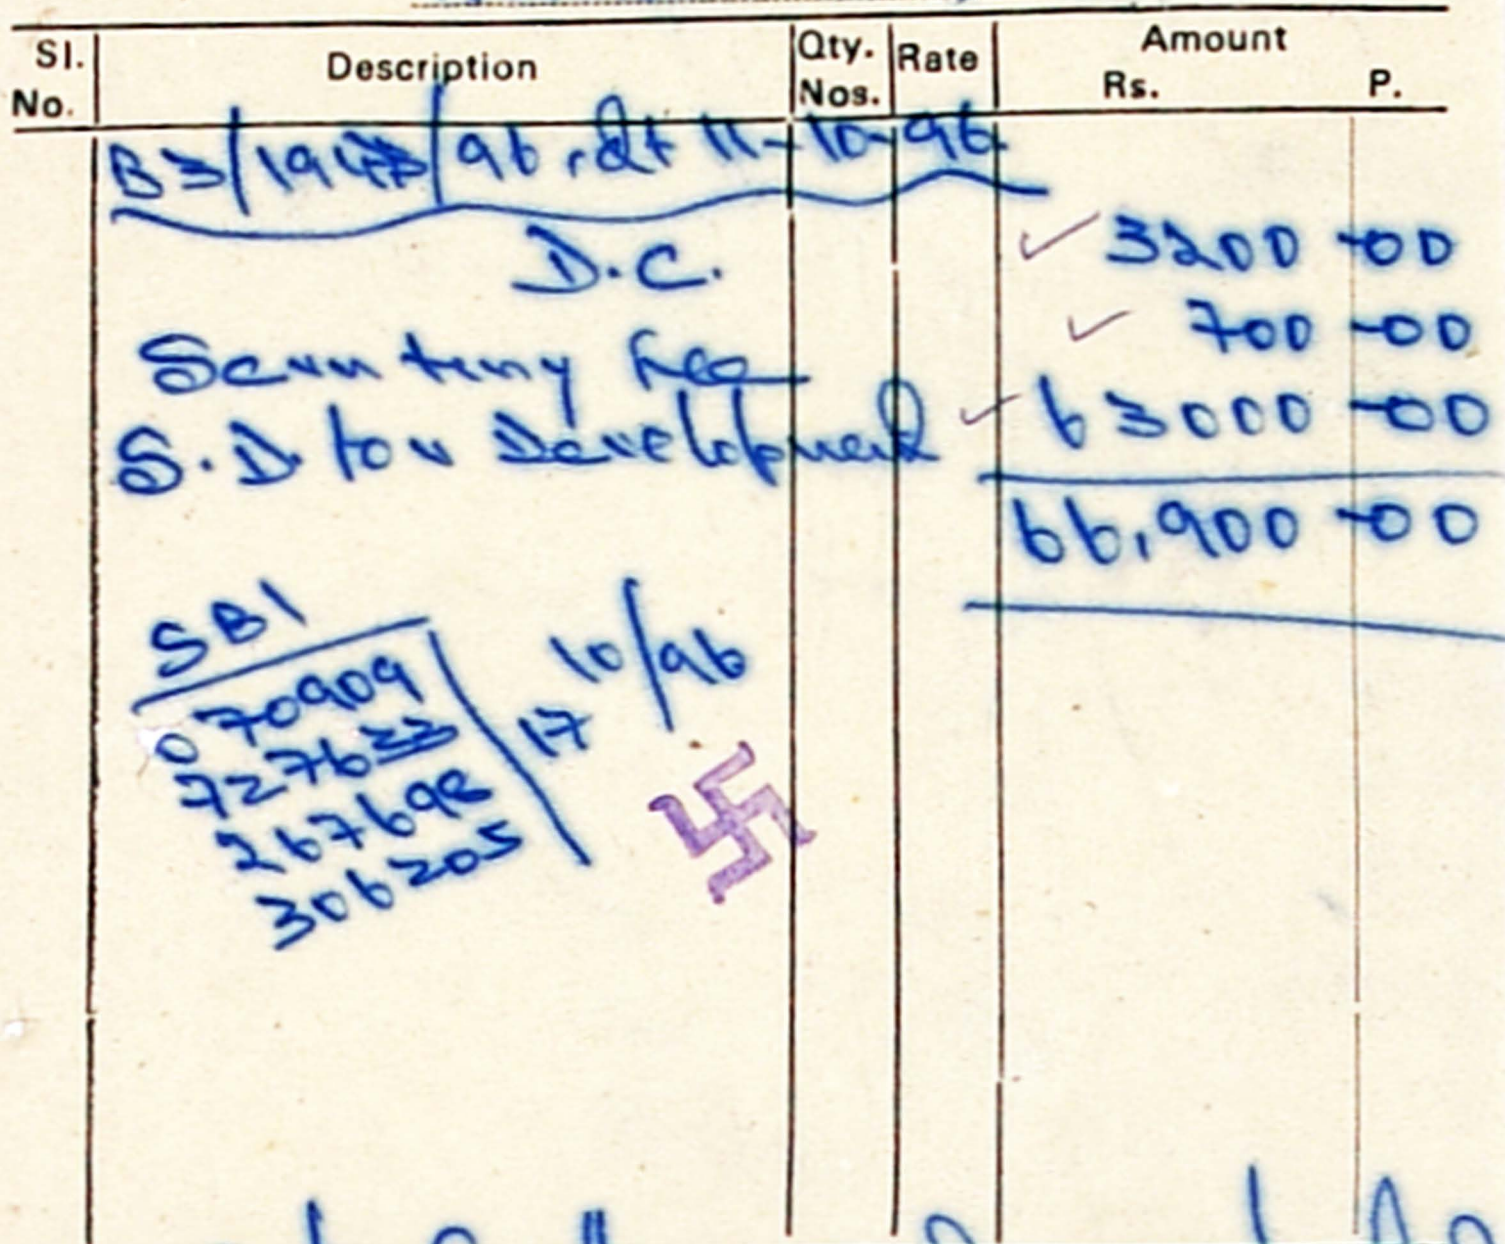 Sl. No. Description Qty. Nos. Rate Amount Rs. P.
B3/194/96, dt 11-10-96
D.C. 3200-00
Scrutiny fee 700-00
S.D. for Development 63000-00
66,900-00
SBI
070909
727633
267698
306205
17/10/96